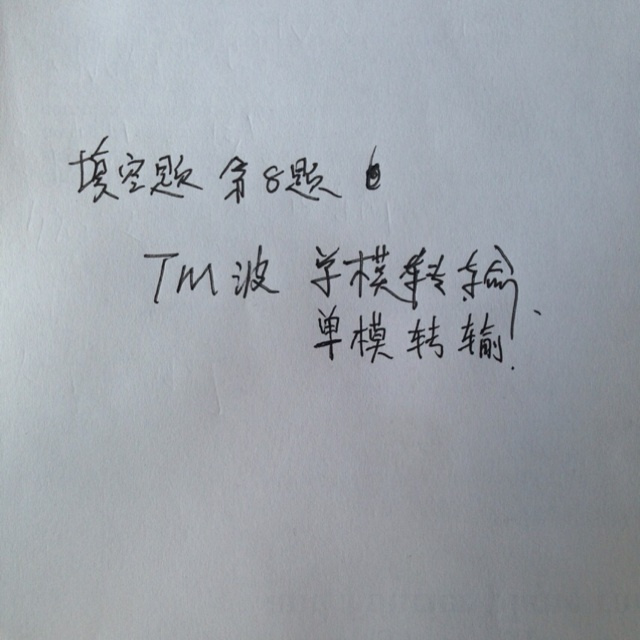 填空题 第8题
TM波 单模转输.
单模转输.